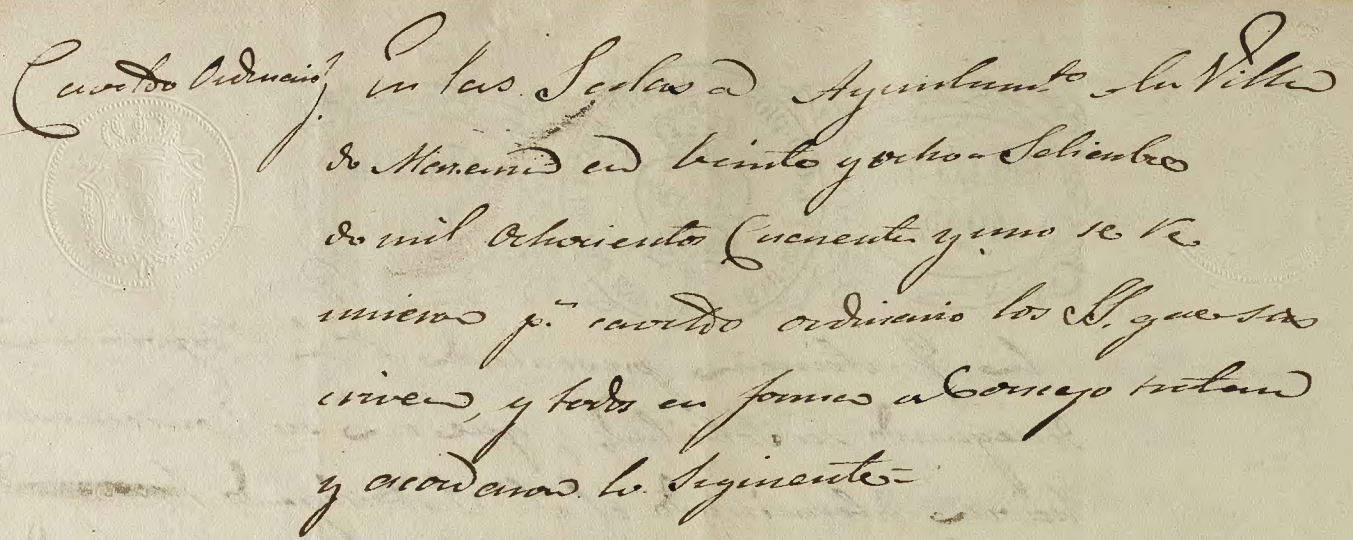 Cavildo Ordinario} En las Salas a Ayuntamto de la Villa
de en veinte y ocho a Setiembre
de mil Ochocientos Cuarenta y uno se re
unieron pa. cavildo ordinario los SS. que sus
criven, y todos en forma a Consejo tratan
y acordaron lo Siguiente=